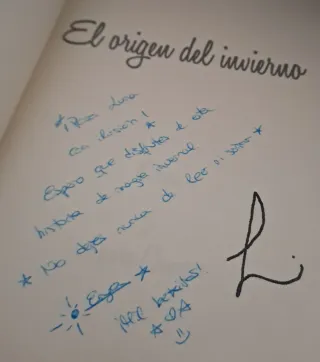 El origen del invierno
* ¡Para Luna
con ilusión! *
Espero que disfrutes de esta
historia de magia invernal
* No dejes nunca de leer ni soñar *
* *
¡Mil besitos!
*